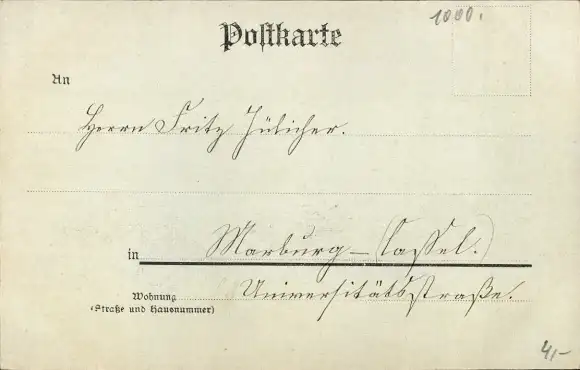 1000.
Postkarte
An
Herrn Fritz Jülicher.
in Marburg-(Cassel.)
Wohnung Universitätsstraße.
(Straße und Hausnummer)
4,-